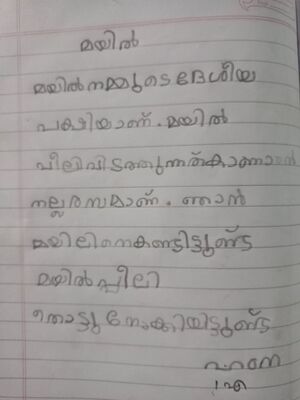 മയിൽ
മയിൽ നമ്മുടെ ദേശീയ
പക്ഷിയാണ്. മയിൽ
പീലിവിടത്തുന്നത്കാണാൻ
നല്ലരസമാണ്. ഞാൻ
മയിലിനെകണ്ടിട്ടുണ്ട
മയിൽപ്പീലി
തൊട്ടു നോക്കിയിട്ടുണ്ട